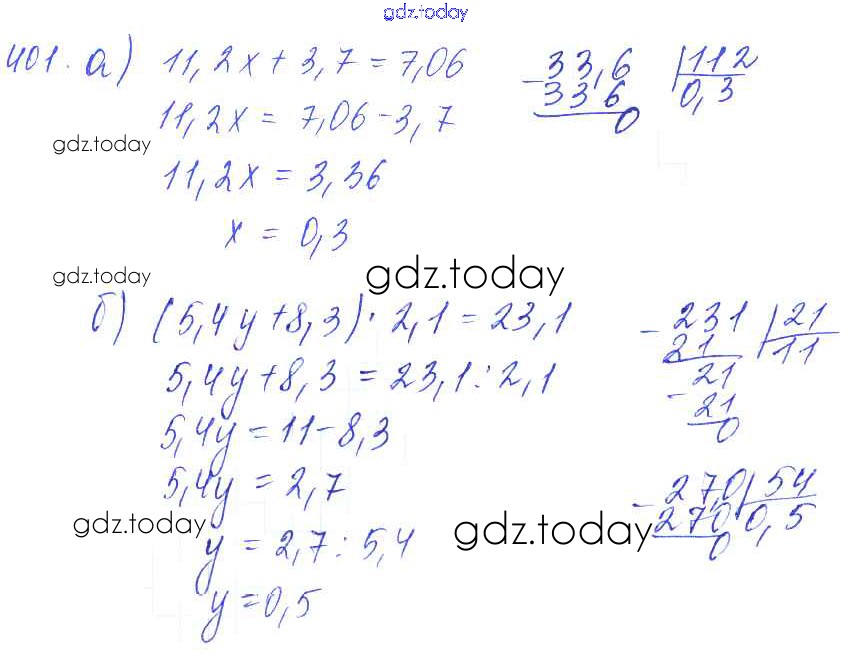 gdz.today
401. а) 11,2x + 3,7 = 7,06
11,2x = 7,06 - 3,7
gdz.today
11,2x = 3,36
x = 0,3
- 33,6 | 112
336 0,3
0
gdz.today
gdz.today
б) (5,4y + 8,3) · 2,1 = 23,1
5,4y + 8,3 = 23,1 : 2,1
5,4y = 11 - 8,3
5,4y = 2,7
gdz.today
y = 2,7 : 5,4
y = 0,5
- 231 | 21
21 11
- 21
21
0
- 27,0 | 54
270 0,5
gdz.today
0